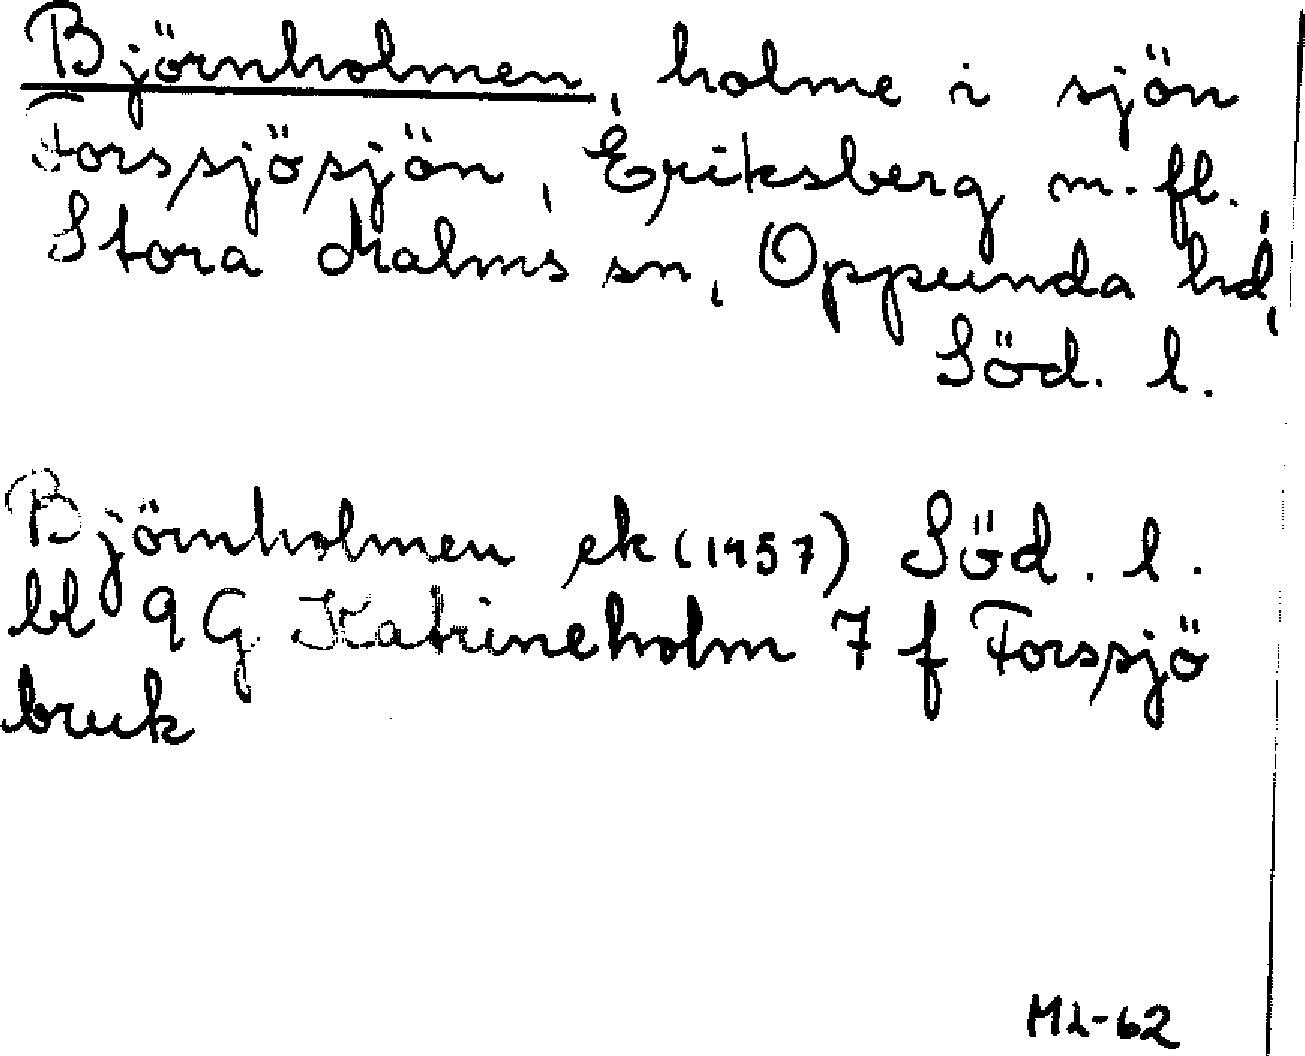 Björnholmen, holme i sjön
Forssjösjön, Eriksberg m. fl.,
Stora Malms sn, Oppunda hd,
Söd. l.
Björnholmen ek (1957) Söd. l.
bl 9G Katrineholm 7 f Forssjö
bruk
ML-62